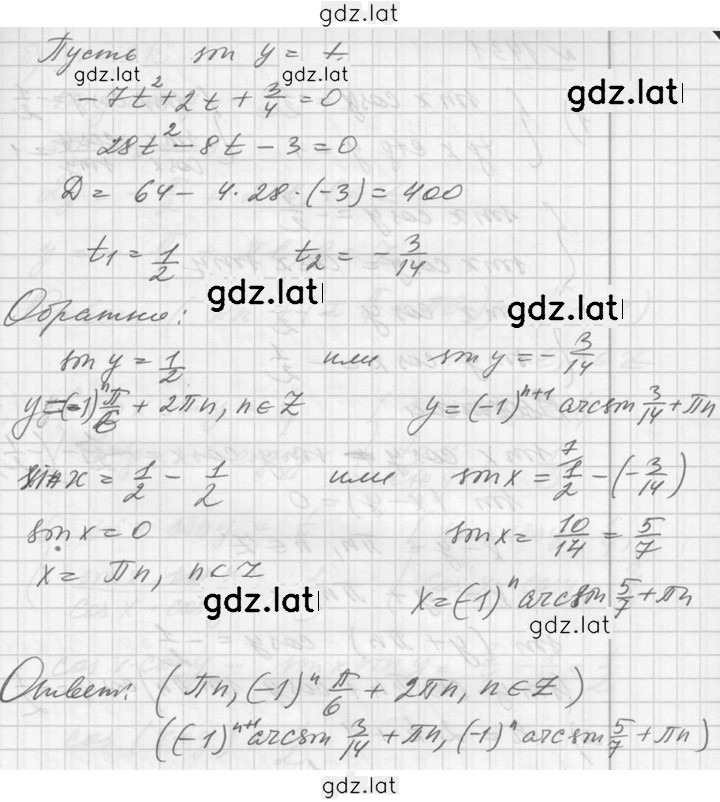 gdz.lat
Пусть sin y = t.
gdz.lat gdz.lat
-7t² + 2t + 3/4 = 0
gdz.lat
28t² - 8t - 3 = 0
D = 64 - 4·28·(-3) = 400
t₁ = 1/2 t₂ = -3/14
gdz.lat
Обратно: gdz.lat
sin y = 1/2 или sin y = -3/14
y = (-1)ⁿ π/6 + 2πn, n∈Z y = (-1)ⁿ⁺¹ arcsin 3/14 + πn
sin x = 1/2 - 1/2 или sin x = ⁷1/2 - (-3/14)
sin x = 0 sin x = 10/14 = 5/7
x = πn, n∈Z x = (-1)ⁿ arcsin 5/7 + πn
gdz.lat gdz.lat
Ответ: (πn, (-1)ⁿ π/6 + 2πn, n∈Z)
((-1)ⁿ⁺¹ arcsin 3/14 + πn, (-1)ⁿ arcsin 5/7 + πn)
gdz.lat